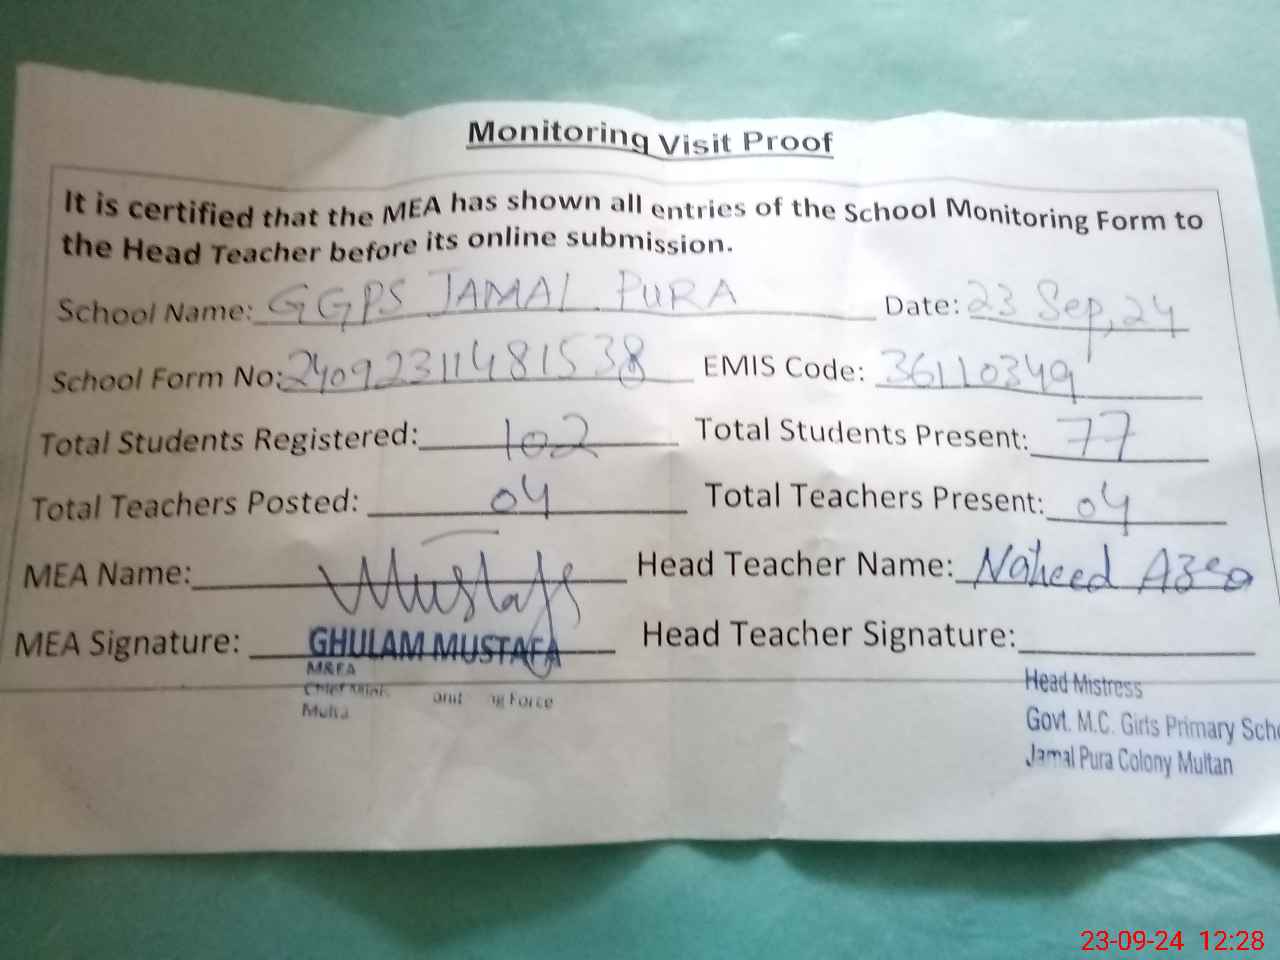 Monitoring Visit Proof
It is certified that the MEA has shown all entries of the School Monitoring Form to
the Head Teacher before its online submission.
School Name: GGPS JAMAL PURA Date: 23 Sep, 24
School Form No: 24092311481538 EMIS Code: 36110349
Total Students Registered: 102 Total Students Present: 77
Total Teachers Posted: 04 Total Teachers Present: 04
MEA Name: Mustafa Head Teacher Name: Naheed
MEA Signature: GHULAM MUSTAFA Head Teacher Signature:
M&EA
Force
Head Mistress
Govt. M.C. Girls Primary Scho
Jamal Pura Colony Multan
23-09-24 12:28